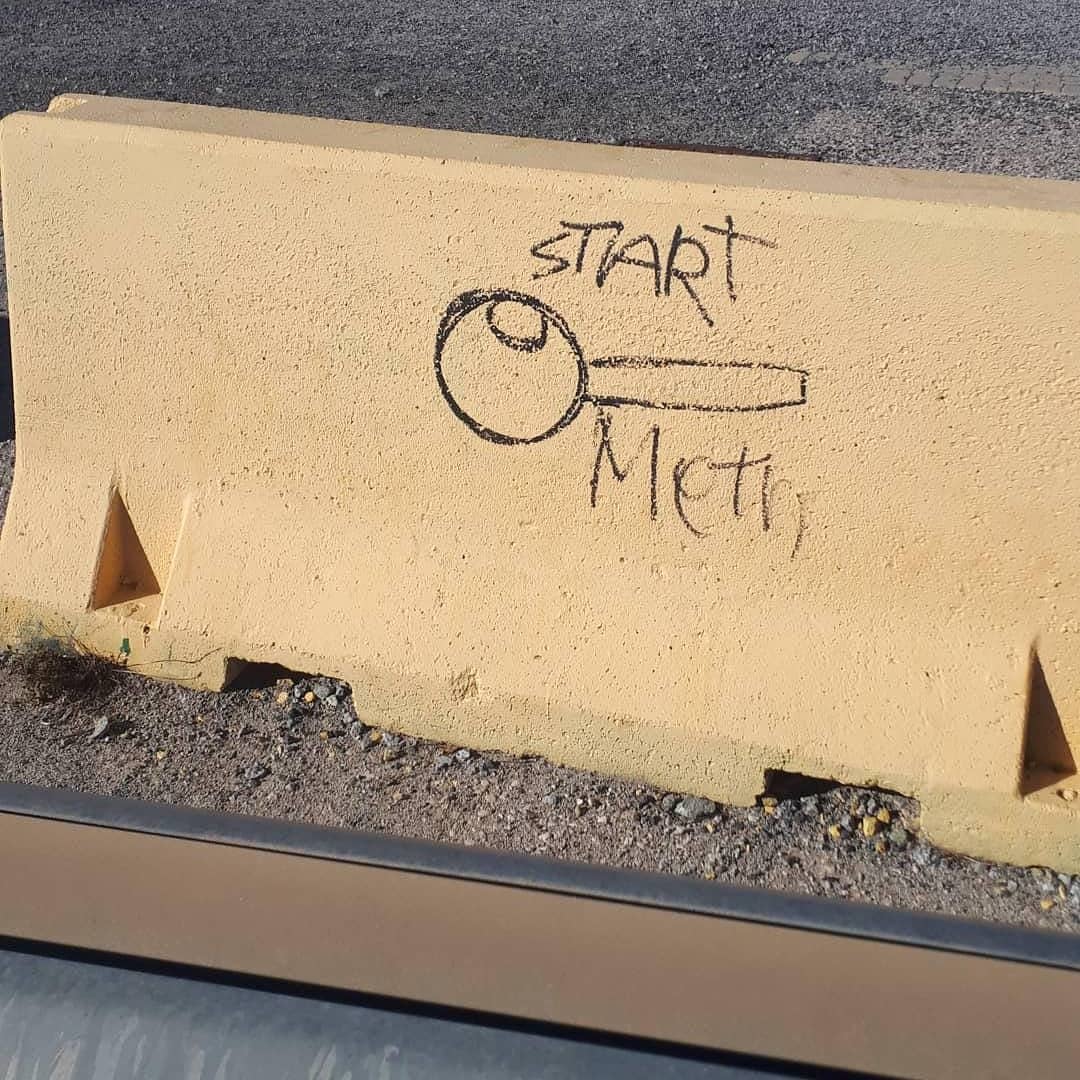 START
Meth